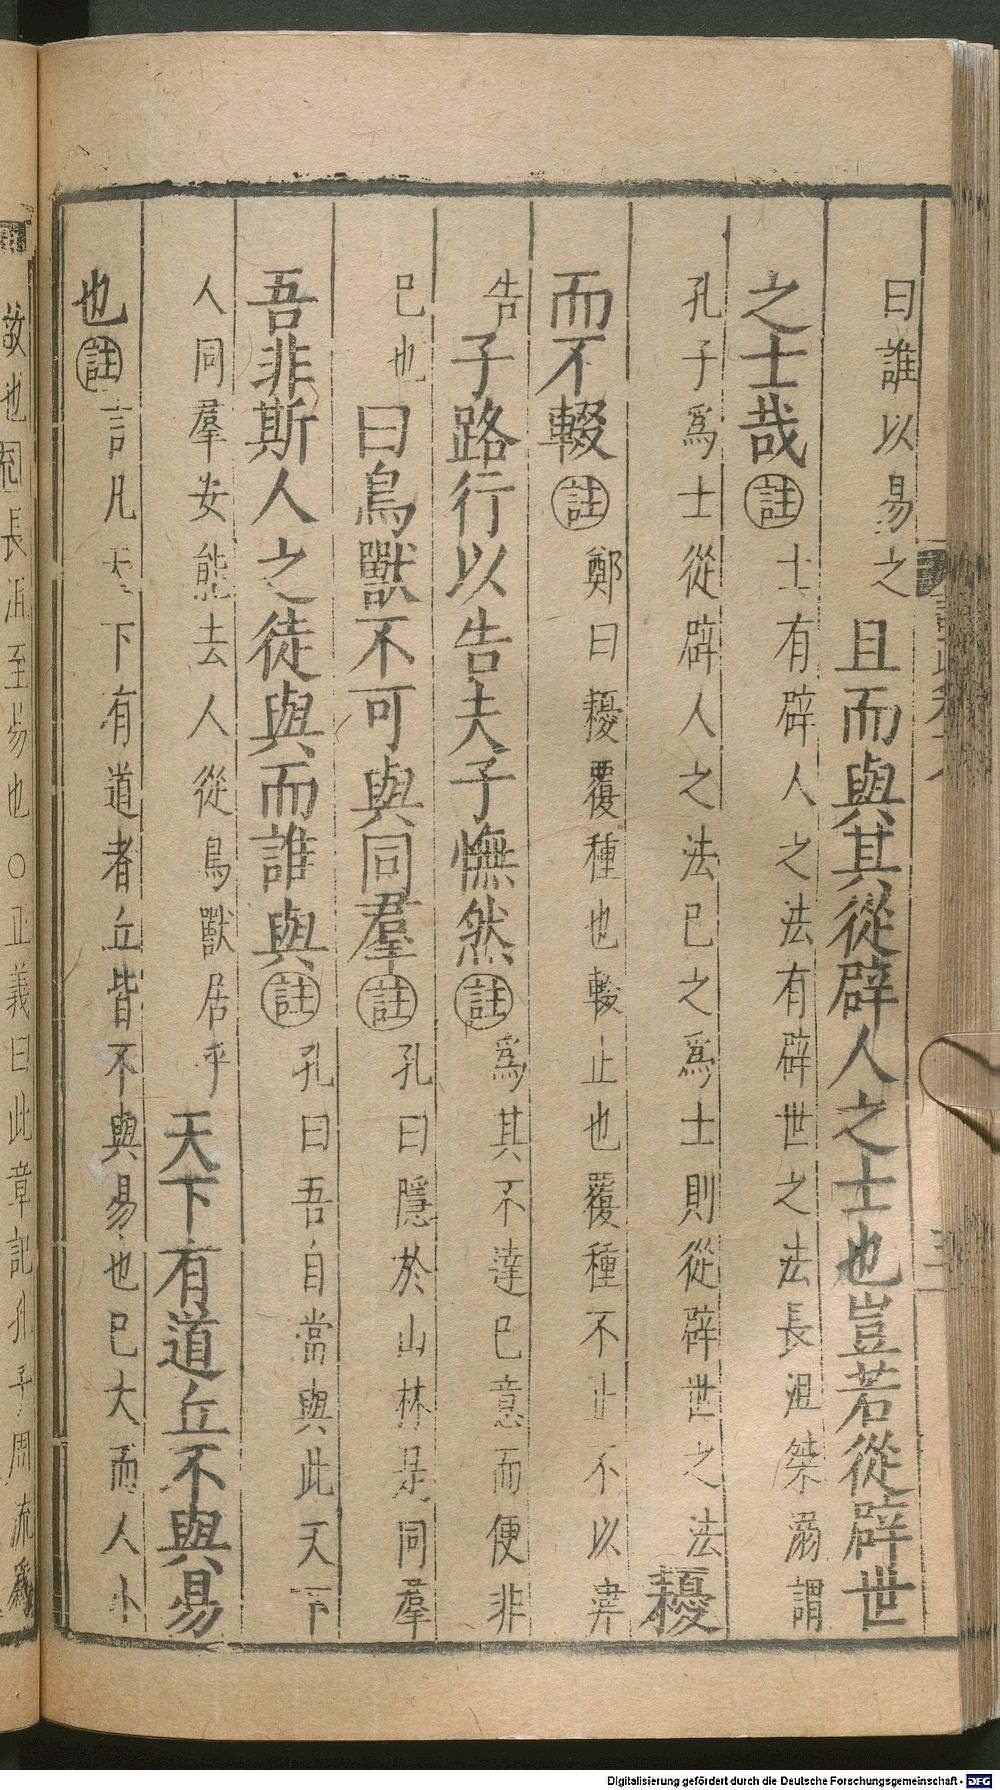 曰誰以易之且而與其從辟人之士也豈若從辟世
之士哉註士有辟人之法有辟世之法長沮桀溺謂
孔子爲士從辟人之法已之爲士則從辟世之法耰
而不輟註鄭曰耰覆種也輟止也覆種不止不以津
告子路行以告夫子憮然註爲其不達已意而便非
已也曰鳥獸不可與同羣註孔曰隱於山林是同羣
吾非斯人之徒與而誰與註孔曰吾自當與此天下
人同羣安能去人從鳥獸居乎天下有道丘不與易
也註言凡天下有道者丘皆不與易也已大而人小
故也 長沮至易也○正義曰此章記孔子周流爲
Digitalisierung gefördert durch die Deutsche Forschungsgemeinschaft - DFG